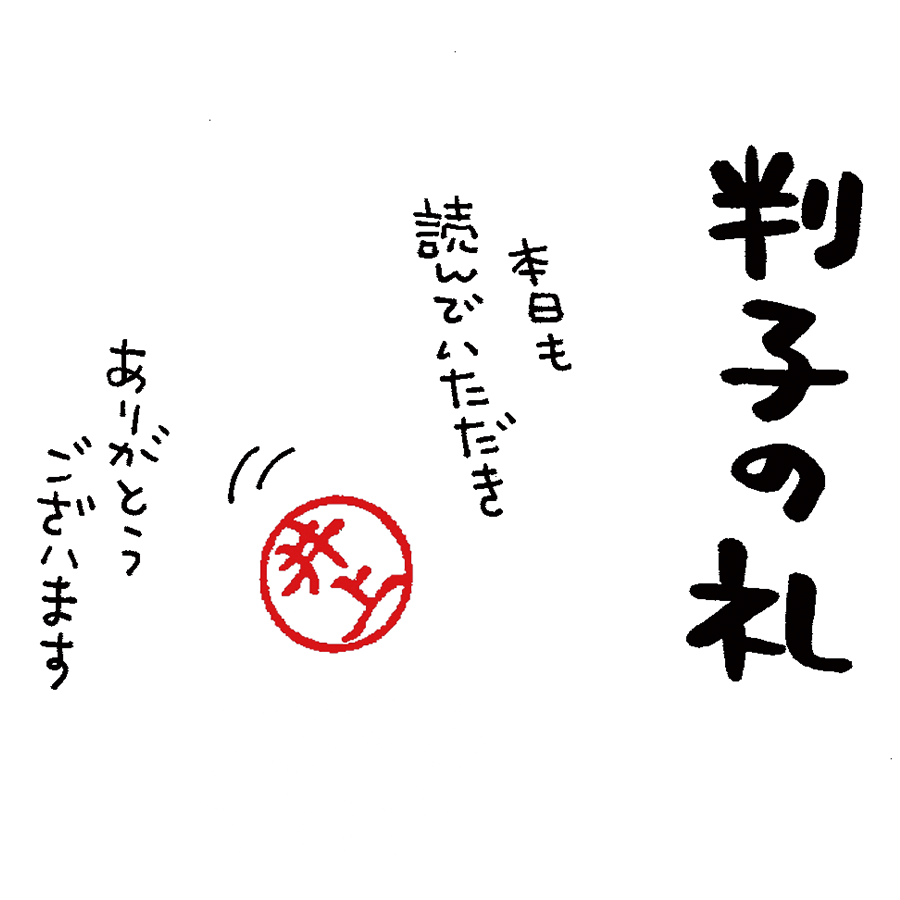 判子の礼
本日も
読んでいただき
井上
ありがとう
ございます